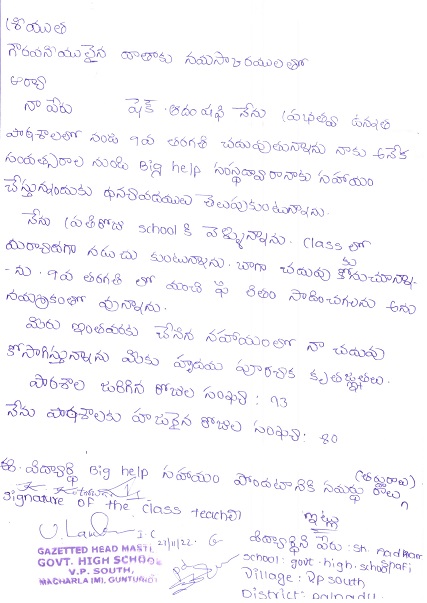 శ్రీయుత
గౌరవనీయులైన దాతలకు నమస్కారములతో
ఆర్యా
నా పేరు షేక్. నేను ప్రభుత్వ ఉన్నత
పాఠశాలలో నందు 9వ తరగతి చదువుతున్నాను నాకు అనేక
సంవత్సరాల నుండి Big help సంస్థద్వారా నాకు సహాయం
చేస్తున్నందుకు ధన్యవాదములు తెలుపుకుంటున్నాను.
నేను ప్రతిరోజు school కి వెళ్ళున్నాను. Class లో
నడుచు కుంటున్నాను. బాగా చదువు కోనుచున్నా-
-ను. 9వ తరగతి లో మంచి ఫలితం సాధించగలను అను
నమ్మకంతో వున్నాను.
మీరు ఇంతవరకు చేసిన సహాయంతో నా చదువు
కోసాగిస్తున్నాను మీకు హృదయ పూర్వక కృతజ్ఞతలు.
పాఠశాల జరిగిన రోజుల సంఖ్య : 93
నేను పాఠశాలకు హాజరైన రోజుల సంఖ్య: 80
ఈ విద్యార్థి Big help సహాయం పొందటానికి సమర్థు రాలు
signature of the class teacher
ఇట్లు
21/11/22
విద్యార్థిని పేరు : sk.
GAZETTED HEAD MASTE
GOVT. HIGH SCHOOL
V.P. SOUTH,
MACHARLA (M), GUNTUR(D)
school : govt. high. school
village : vp south
District : palnadu